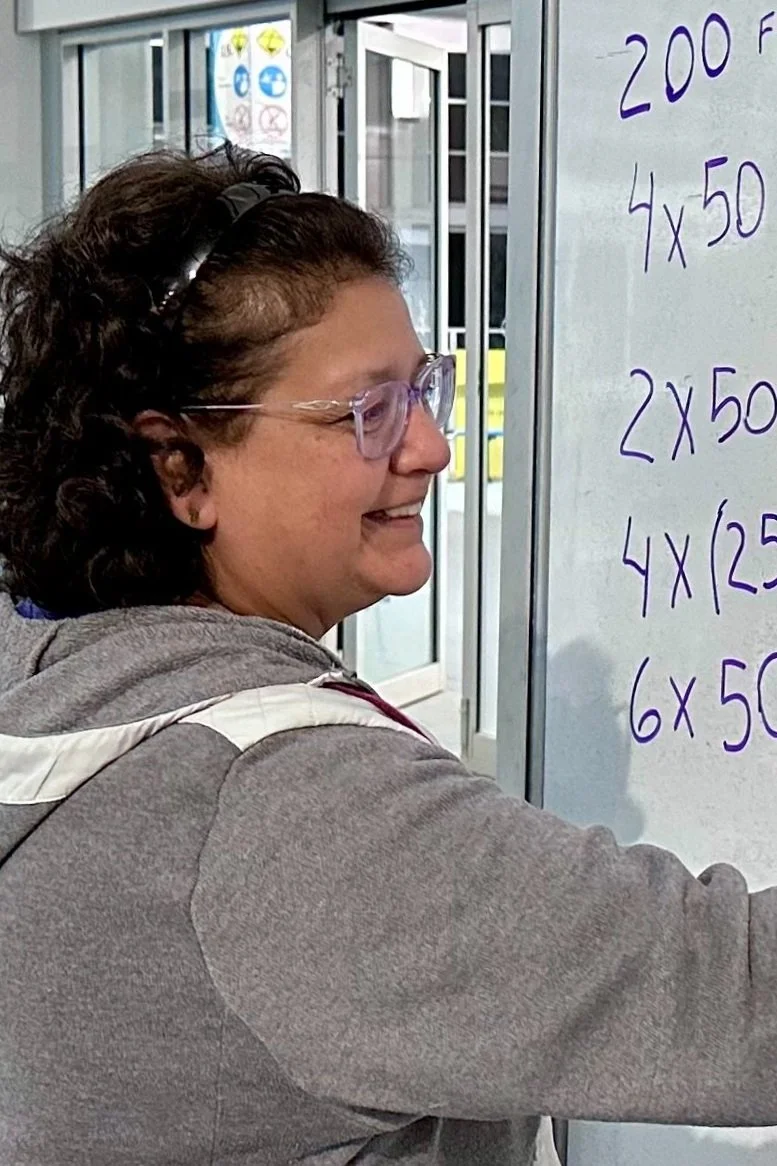 200 F
4x50
2x50
4x(25
6x50